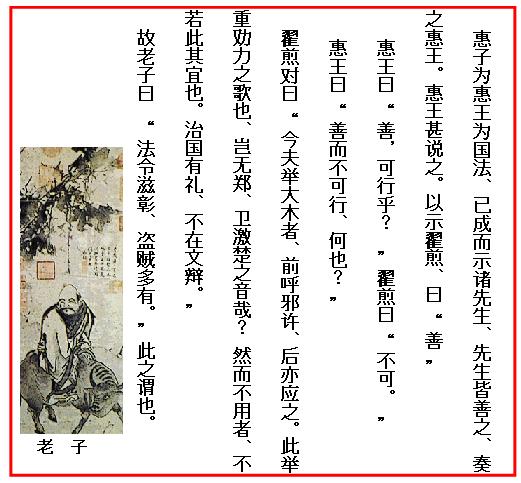 惠子为惠王为国法、已成而示诸先生、先生皆善之、奏
之惠王。惠王甚说之。以示翟煎、曰“善”
惠王曰“善，可行乎？”翟煎曰“不可。”
惠王曰“善而不可行、何也？”
翟煎对曰“今夫举大木者、前呼邪许、后亦应之。此举
重劝力之歌也、岂无郑、卫激楚之音哉？然而不用者、不
若此其宜也。治国有礼、不在文辩。”
故老子曰“法令滋彰、盗贼多有。”此之谓也。
老子